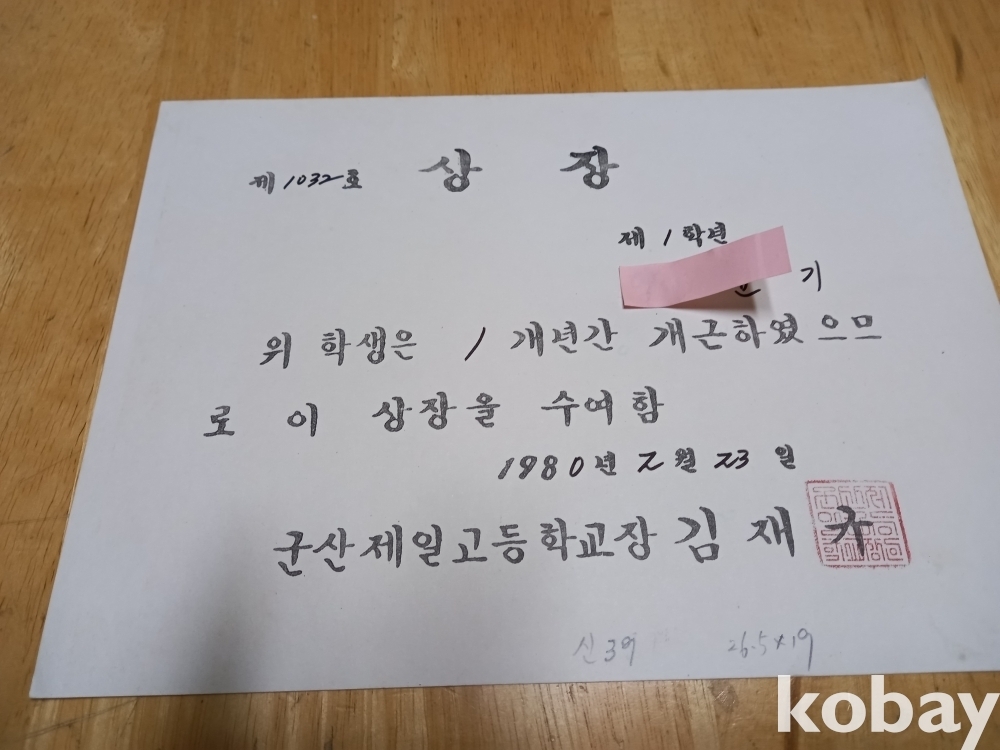 제 1032 호 상 장
제 1 학년
기
위 학생은 1 개년간 개근하였으므
로 이 상장을 수여함
1980년 2월 23일
군산제일고등학교장 김 재 규
신 39
26.5 x 19
kobay